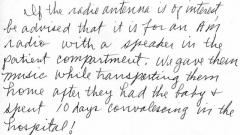 If the radio antenna is of interest,
be advised that it is for an AM
radio with a speaker in the
patient compartment. We gave them
music while transporting them
home after they had the baby &
spent 10 days convalescing in the
hospital!